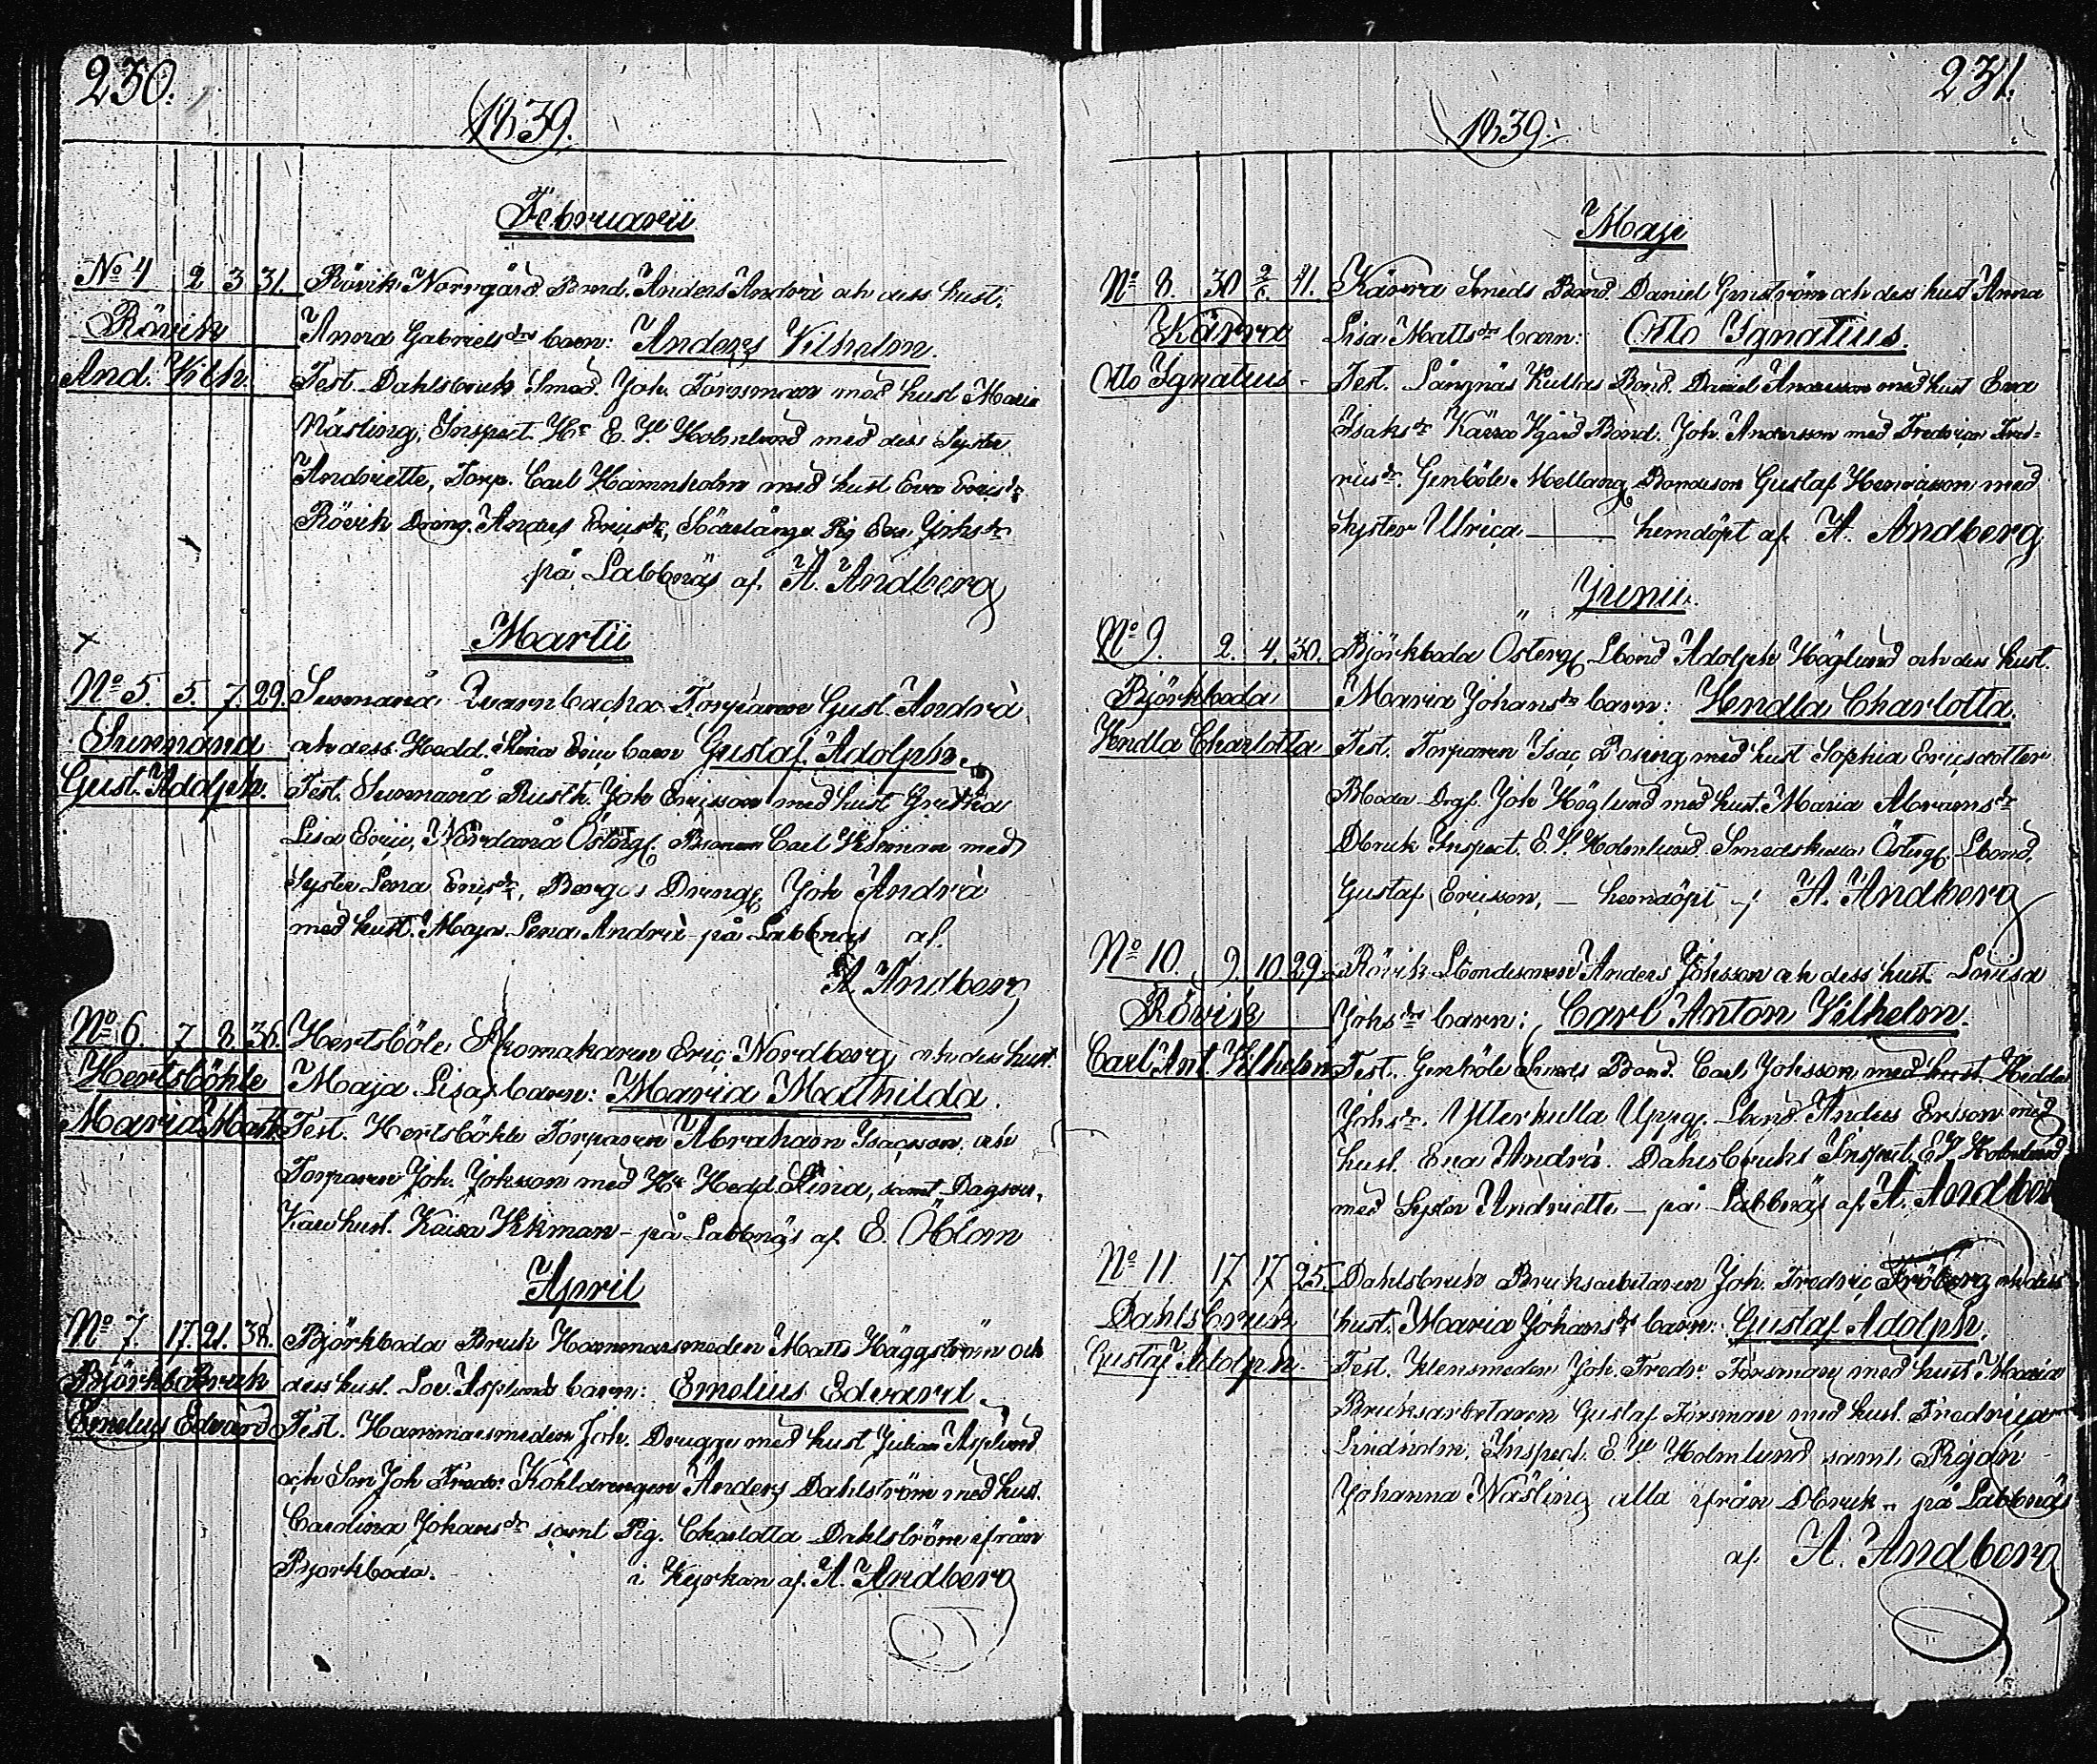 230.
1839.
Februarii
No 4 2 3 31. Rövik Norrgård Bond. Anders Andrà och dess hust.
Rövik Anna Gabriels dr barn: Anders Vilhelm.
And. Vilh. Test. Dahlsbruk Smed. Joh. Forssman med hust Maria
Näsling, Inspect. Hr E. V. Holmlund med dess Syster
Andriette, Torp. Carl Hamnholm med hust Eva Erics dr
Rövik Dreng. Anders Erics, Söderlånga Pig Eva Johs dr
på Labbnäs af A. Andberg
Martii
No 5. 5. 7. 29. Sunnanå Qvarnbacka Torparen Gust. Andrà
Sunnanå och dess Hedd. Stina Eric barn Gustaf Adolph.
Gust. Adolph. Test. Sunnanå Rusth. Joh Ericsson med hust Gretha
Lisa Eric, Nordanå Österg. Carl Vikman med
Syster Lena Erics dr, Berga Dreng Joh Andrà
med hust. Maja Lena Andrà på Labbnäs af.
A. Andberg
No 6. 7 8. 36. Hertsböle Skomakaren Eric Nordberg och dess hust.
Hertsböhle Maja Lisas barn: Maria Mathilda.
Maria Math. Test. Hertsböhle Torparen Abraham Isacsson och
Torparen Joh. Johsson med Hedd Stina, samt
hust. Kaisa Vikman - på Labbnäs af E. Öblom
April
No 7. 17. 21. 38. Björkboda Bruk Hammarsmeden Matts Häggström och
Björkb. Bruk dess hust. Lov. Asplunds barn: Emelius Edvard.
Emelius Edvard Test. Hammarsmeden Joh. Drugge med hust Julian Asplund
och Son Joh Fredr. Kohldrengen Anders Dahlström med hust.
Carolina Johans dr samt Pig. Charlotta Dahlström ifrån
Björkboda. i Kyrkan af. A. Andberg
231.
1839.
Maji
No 8. 30 2/6 41. Kärra Smeds Bond. Daniel Genström och dess hust Anna
Kärra Lisa Matts dr barn: Otto Ignatius.
Otto Ignatius Test. Långnäs Kullas Bond. Daniel Andersson med hust Eva
Isaks dr Kärra Bond. Joh. Andersson med Fredrica Fred-
rics dr. Genböle Mellang. Bondeson Gustaf Henricsson med
Syster Ulrica hemdöpt af A. Andberg
Junii.
No 9. 2. 4. 30. Björkboda Österg. Lbond Adolph Höglund och dess hust.
Björkboda Maria Johans dr barn: Hendla Charlotta.
Hendla Charlotta Test. Torparen Isac Rosing med hust Sophia Ericsdotter
Bboda Joh Höglund med hust. Maria Abrams dr
Dbruk Inspect. E. V. Holmlund Smedskulla Österg. Lbond.
Gustaf Ericsson, - hemdöpt af A. Andberg
No 10. 9. 10 29. Rövik Lbondesonen Anders Johsson och dess hust. Lovisa
Rövik Johs dr barn: Carl Anton Vilhelm.
Carl Ant. Vilhelm Test. Genböle Smeds Bond. Carl Johsson med hust. Hedda
Johs dr. Ytterkulla Uppg. Lbond. Anders Ericson med
hust. Eva Andrà. Dahlsbruks Inspect. E. V. Holmlund
med Syster Andriette - på Labbnäs af A. Andberg
No 11. 17 17 25. Dahlsbruk Bruksarbetaren Joh. Fredric Fröberg och dess
Dahlsbruk hust. Maria Johans dr barn: Gustaf Adolph.
Gustaf Adolph. Test. Klensmeden Joh. Fredr. Forsman med hust Maria
Bruksarbetaren Gustaf Forsman med hust. Fredrica
Lindholm, Inspect. E. V. Holmlund samt Pigan
Johanna Näsling alla ifrån Dbruk - på Labbnäs
af. A. Andberg